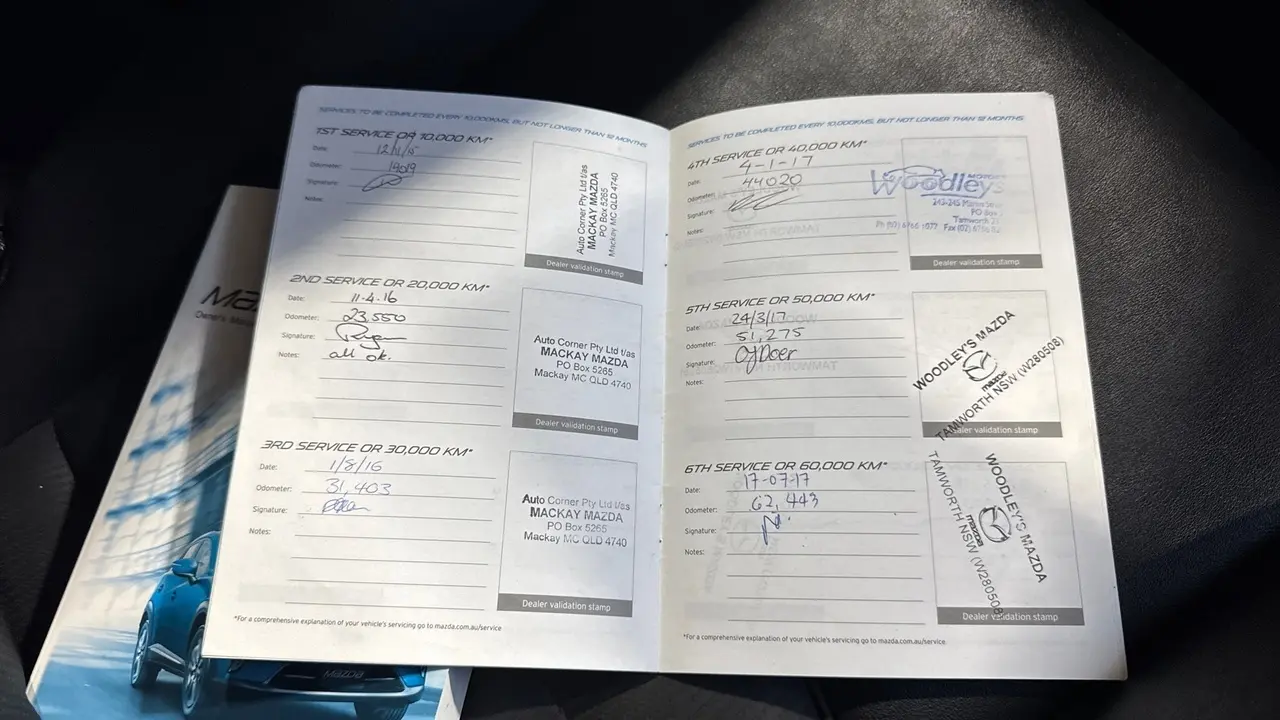 SERVICES TO BE COMPLETED EVERY 10,000KMS, BUT NOT LONGER THAN 12 MONTHS
1ST SERVICE OR 10,000 KM*
Date: 12/11/15
Odometer:
Signature:
Notes:
Auto Corner Pty Ltd t/as
MACKAY MAZDA
PO Box 5265
Mackay MC QLD 4740
Dealer validation stamp
2ND SERVICE OR 20,000 KM*
Date: 11-4-16
Odometer: 23,550
Signature:
Notes: all ok.
Auto Corner Pty Ltd t/as
MACKAY MAZDA
PO Box 5265
Mackay MC QLD 4740
Dealer validation stamp
3RD SERVICE OR 30,000 KM*
Date: 1/8/16
Odometer: 31,403
Signature:
Notes:
Auto Corner Pty Ltd t/as
MACKAY MAZDA
PO Box 5265
Mackay MC QLD 4740
Dealer validation stamp
*For a comprehensive explanation of your vehicle's servicing go to mazda.com.au/service
SERVICES TO BE COMPLETED EVERY 10,000KMS, BUT NOT LONGER THAN 12 MONTHS
4TH SERVICE OR 40,000 KM*
Date: 4-1-17
Odometer: 44020
Signature:
Notes:
MOTORS
Woodleys
PO Box
Tamworth
Ph (02) 6765 1077 Fax (02)
Dealer validation stamp
5TH SERVICE OR 50,000 KM*
Date: 24/3/17
Odometer: 51,275
Signature:
Notes:
WOODLEY'S MAZDA
mazda
TAMWORTH NSW (W280508)
Dealer validation stamp
6TH SERVICE OR 60,000 KM*
Date: 17-07-17
Odometer: 62,443
Signature:
Notes:
WOODLEY'S MAZDA
mazda
TAMWORTH NSW (W280508)
Dealer validation stamp
*For a comprehensive explanation of your vehicle's servicing go to mazda.com.au/service
mazda